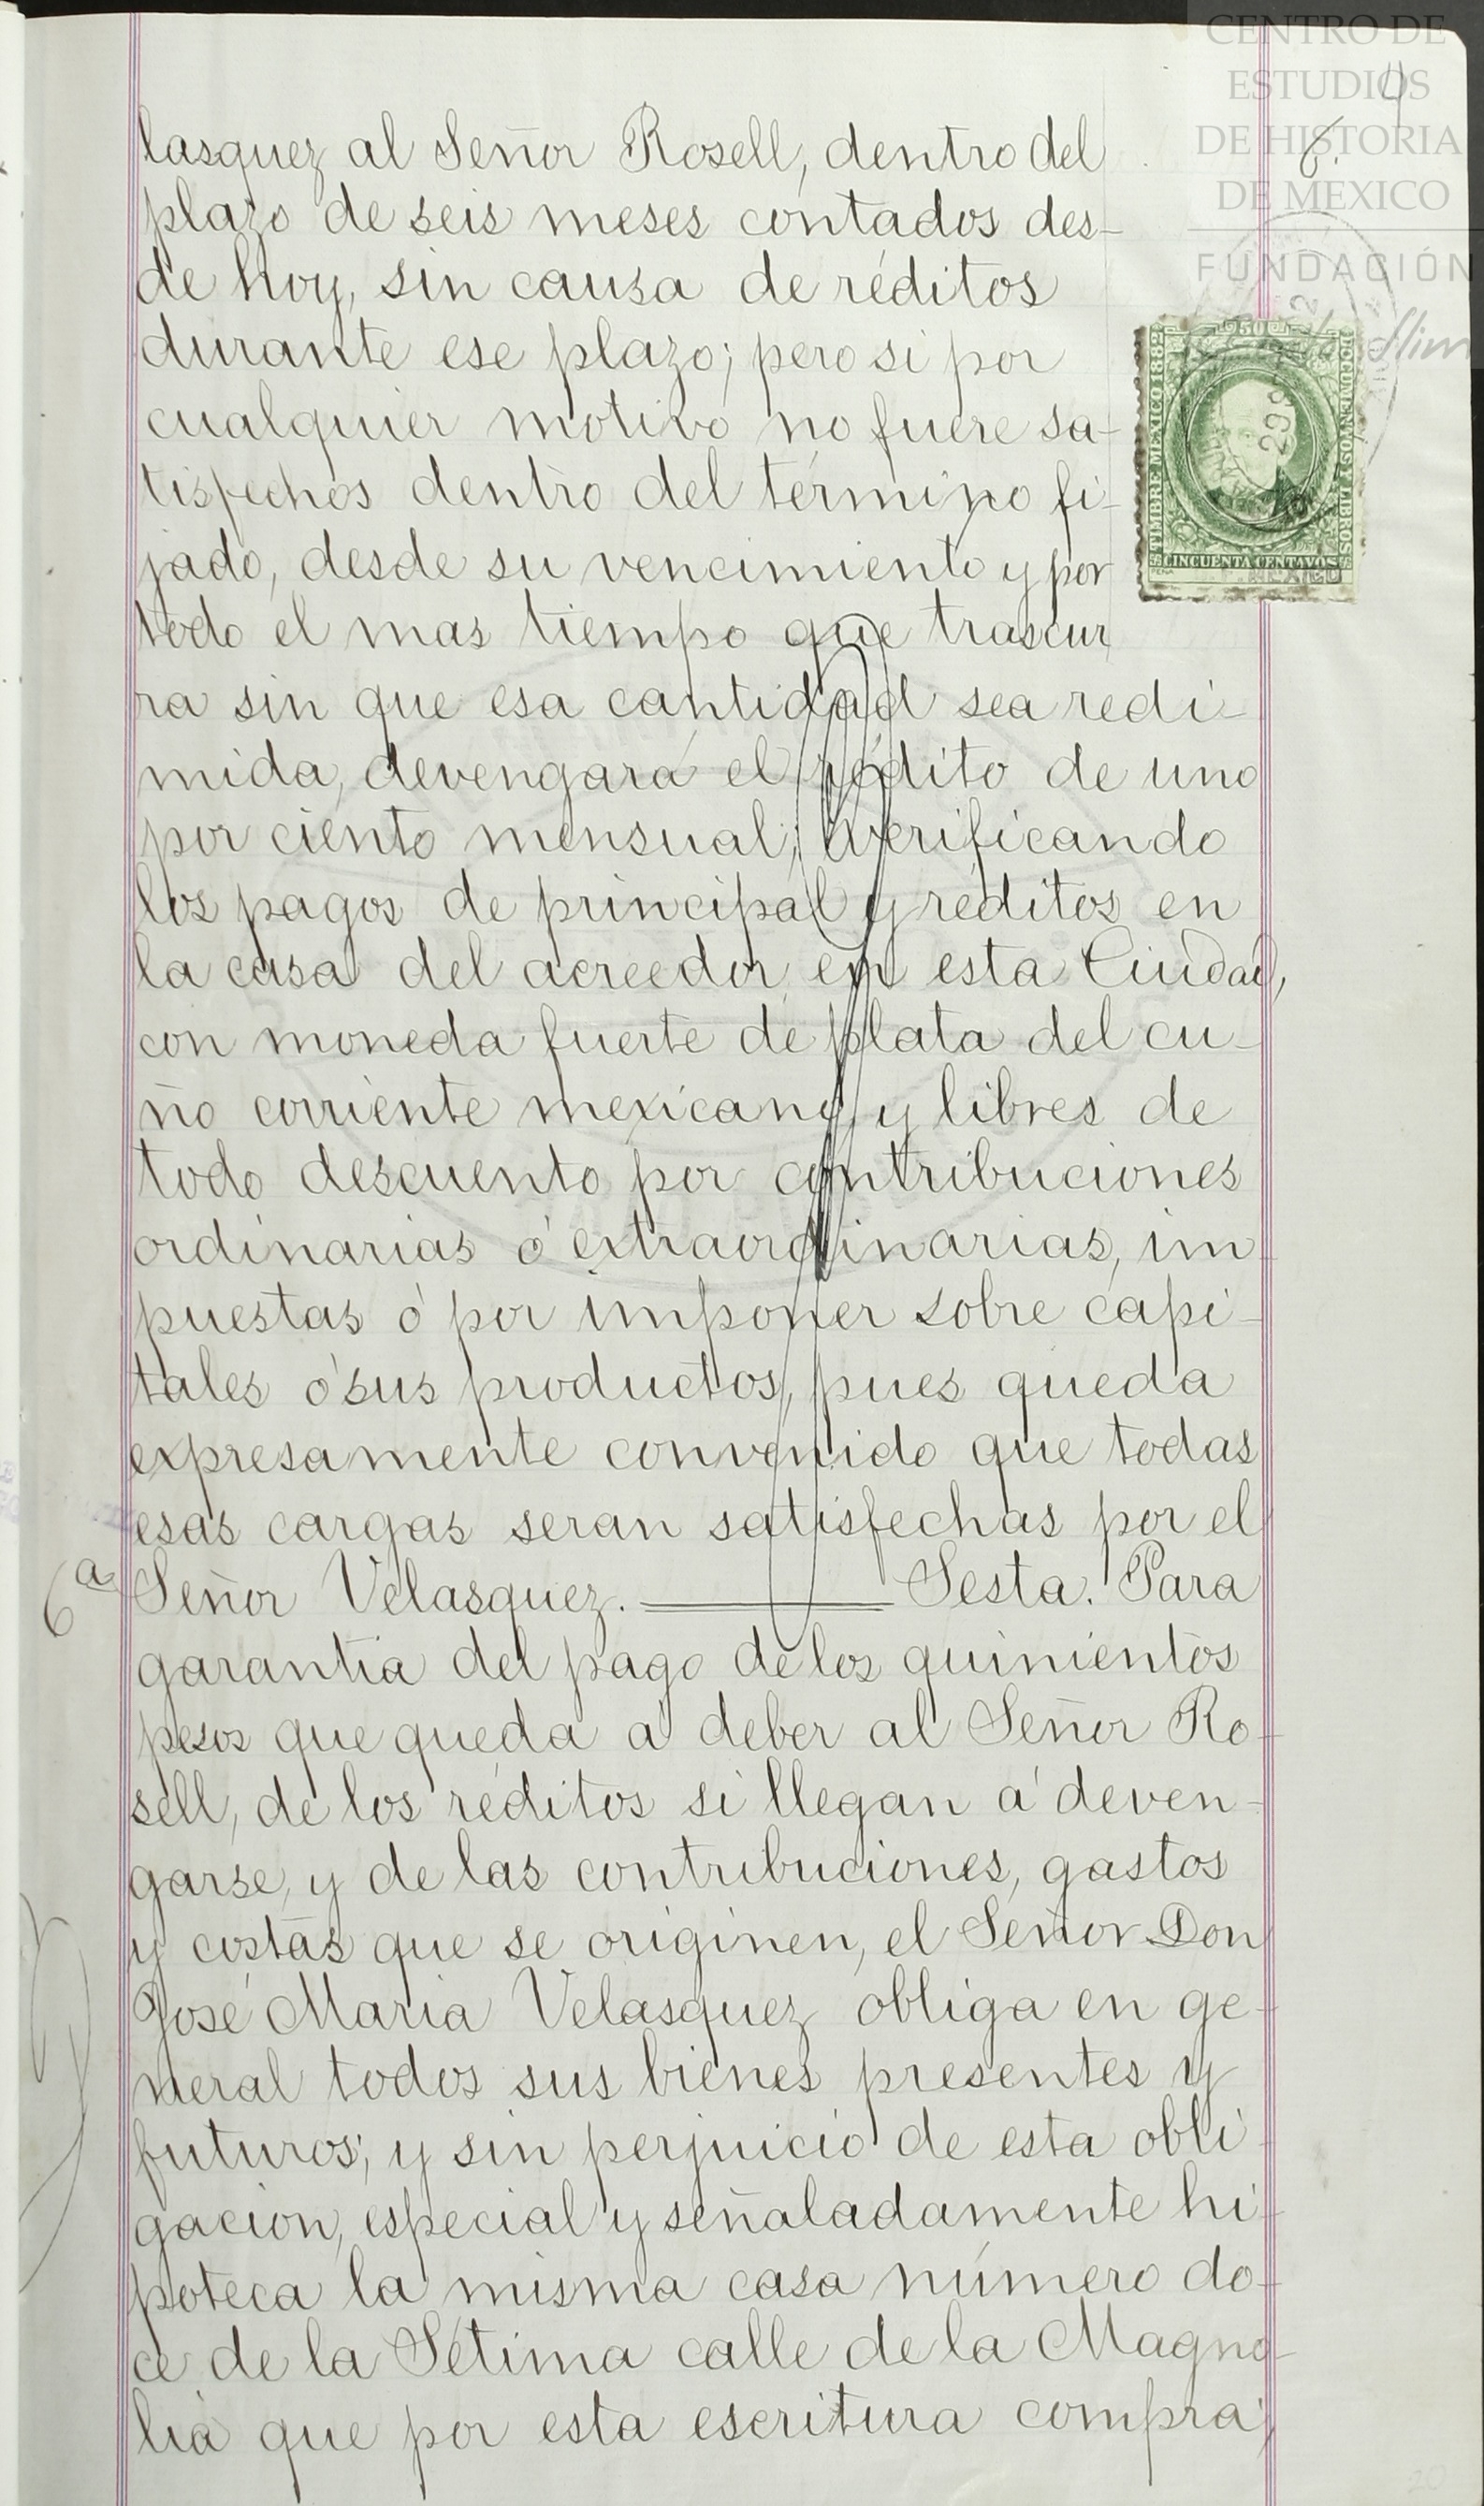 CENTRO DE
ESTUDIOS
DE HISTORIA
DE MEXICO
FUNDACIÓN
Slim
4
6.
lasquez al Señor Rosell, dentro del
plazo de seis meses contados des-
de hoy, sin causa de réditos
durante ese plazo; pero si por
cualquier motivo no fuere sa-
tisfechos dentro del término fi-
jado, desde su vencimiento y por
todo el mas tiempo que trascur
ra sin que esa cantidad sea redi-
mida, devengará el rédito de uno
por ciento mensual; verificando
los pagos de principal y réditos en
la casa del acreedor en esta Ciudad,
con moneda fuerte de plata del cu-
ño corriente mexicano y libres de
todo descuento por contribuciones
ordinarias ó extraordinarias, im-
puestas ó por imponer sobre capi-
tales ó sus productos, pues queda
expresamente convenido que todas
esas cargas seran satisfechas por el
6a Señor Velasquez. Sesta. Para
garantia del pago de los quinientos
pesos que queda á deber al Señor Ro-
sell, de los réditos si llegan á deven-
garse, y de las contribuciones, gastos
y costas que se originen, el Señor Don
José Maria Velasquez obliga en ge-
neral todos sus bienes presentes y
futuros; y sin perjuicio de esta obli-
gacion, especial y señaladamente hi-
poteca la misma casa número do-
ce de la Sétima calle de la Magno-
lia que por esta escritura compra;
50
TIMBRE MEXICO 1882
DOCUMENTOS Y LIBROS
CINCUENTA CENTAVOS
MEXICO
299
20